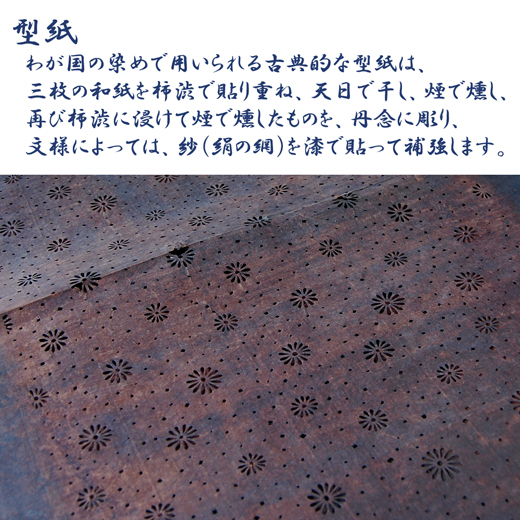 型紙
わが国の染めで用いられる古典的な型紙は、
三枚の和紙を柿渋で貼り重ね、天日で干し、煙で燻し、
再び柿渋に浸けて煙で燻したものを、丹念に彫り、
文様によっては、紗(絹の網)を漆で貼って補強します。